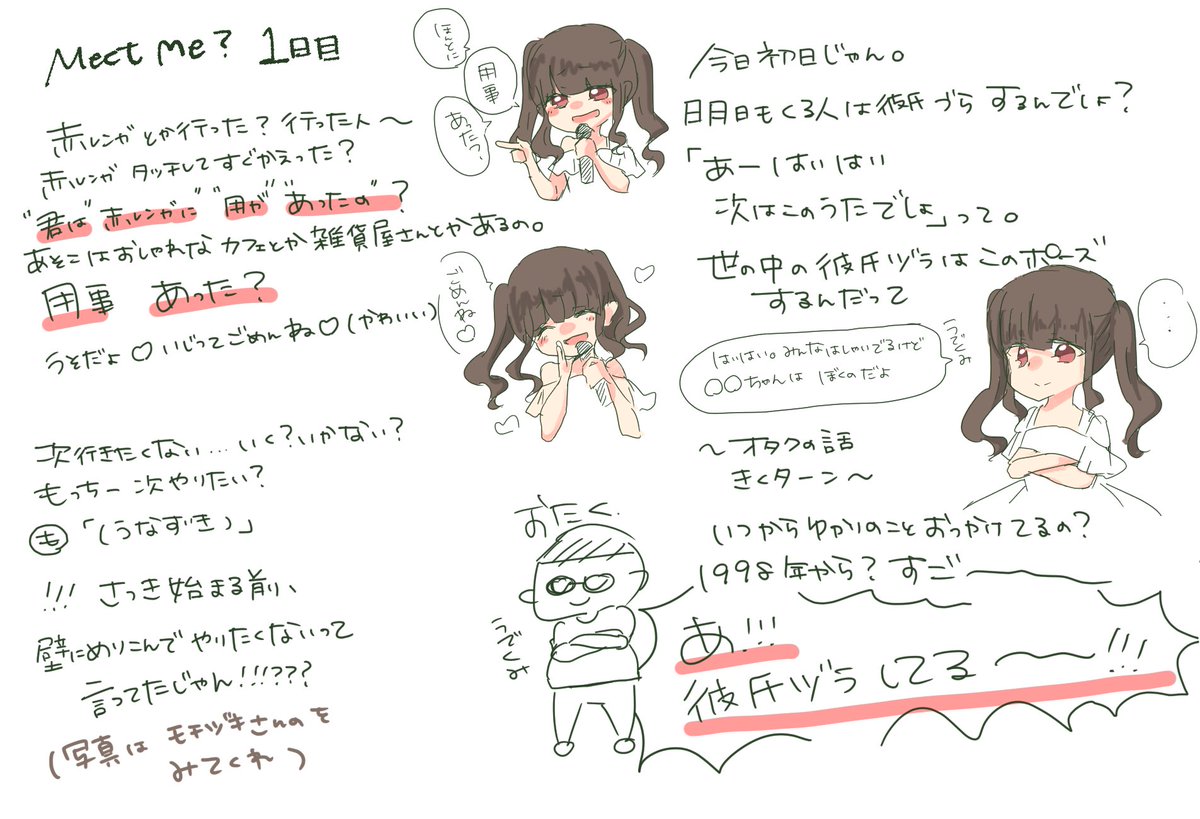 Meet me? 1日目
赤レンガとか行った？行った人〜
赤レンガ タッチしてすぐかえった？
"君は" 赤レンガに" "用が" "あったの"？
あそこはおしゃれな カフェとか雑貨屋さんとかあるの。
用事 あった？
うそだよ♡ いじってごめんね♡(かわいい)
ほんとに
用事
あった？
ごめんね♡
次行きたくない…いく？いかない？
もっちー次やりたい？
も「(うなずき)」
!!! さっき始まる前、
壁にめりこんで やりたくないって
言ってたじゃん!!!???
(写真は モチヅキさんのを
みてくれ)
今日初日じゃん。
明日もくる人は彼氏づらするんでしょ？
「あー はいはい
次はこのうたでしょ」って。
世の中の彼氏ヅラはこのポーズ
するんだって
・・・
うでくみ
はいはい。みんなはしゃいでるけど
〇〇ちゃんは ぼくのだよ
〜オタクの話
きくターン〜
おたく
うでくみ
いつからゆかりのこと おっかけてるの？
1998年から？すごー
あ!!!
彼氏ヅラしてるー!!!